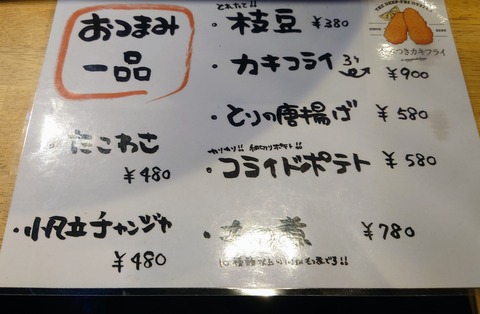 おつまみ
一品
・たこわさ
¥480
・小帆立チャンジャ
¥480
とれたて!!
・枝豆 ¥380
・カキフライ 3ヶ ¥900
・とりの唐揚げ ¥580
カリカリ!! 手切りポテト!!
・フライドポテト ¥580
煮 ¥780
です!!
THE DEEP-FRI OYSTER
つきカキフライ